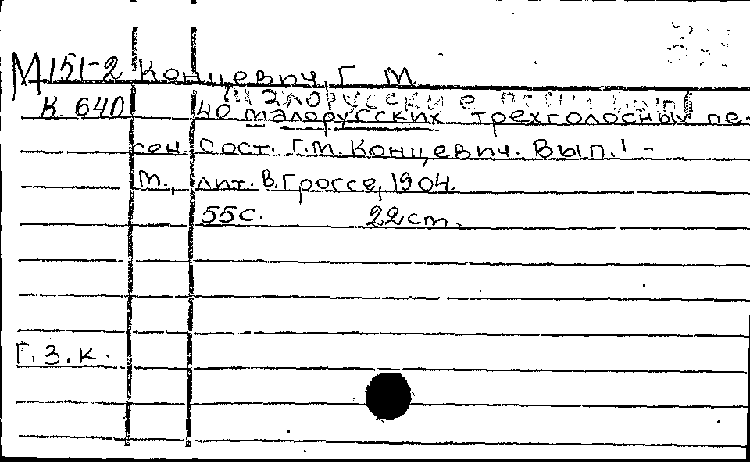 М151-2 Концевич, Г. М.
Малорусские песни вып1
К 640 40 малорусских трехголосных пе-
сен Сост. Г.М. Концевич. Вып.1 -
М., лит. В. Гроссе, 1904.
55с. 22см.
Г.З.К.